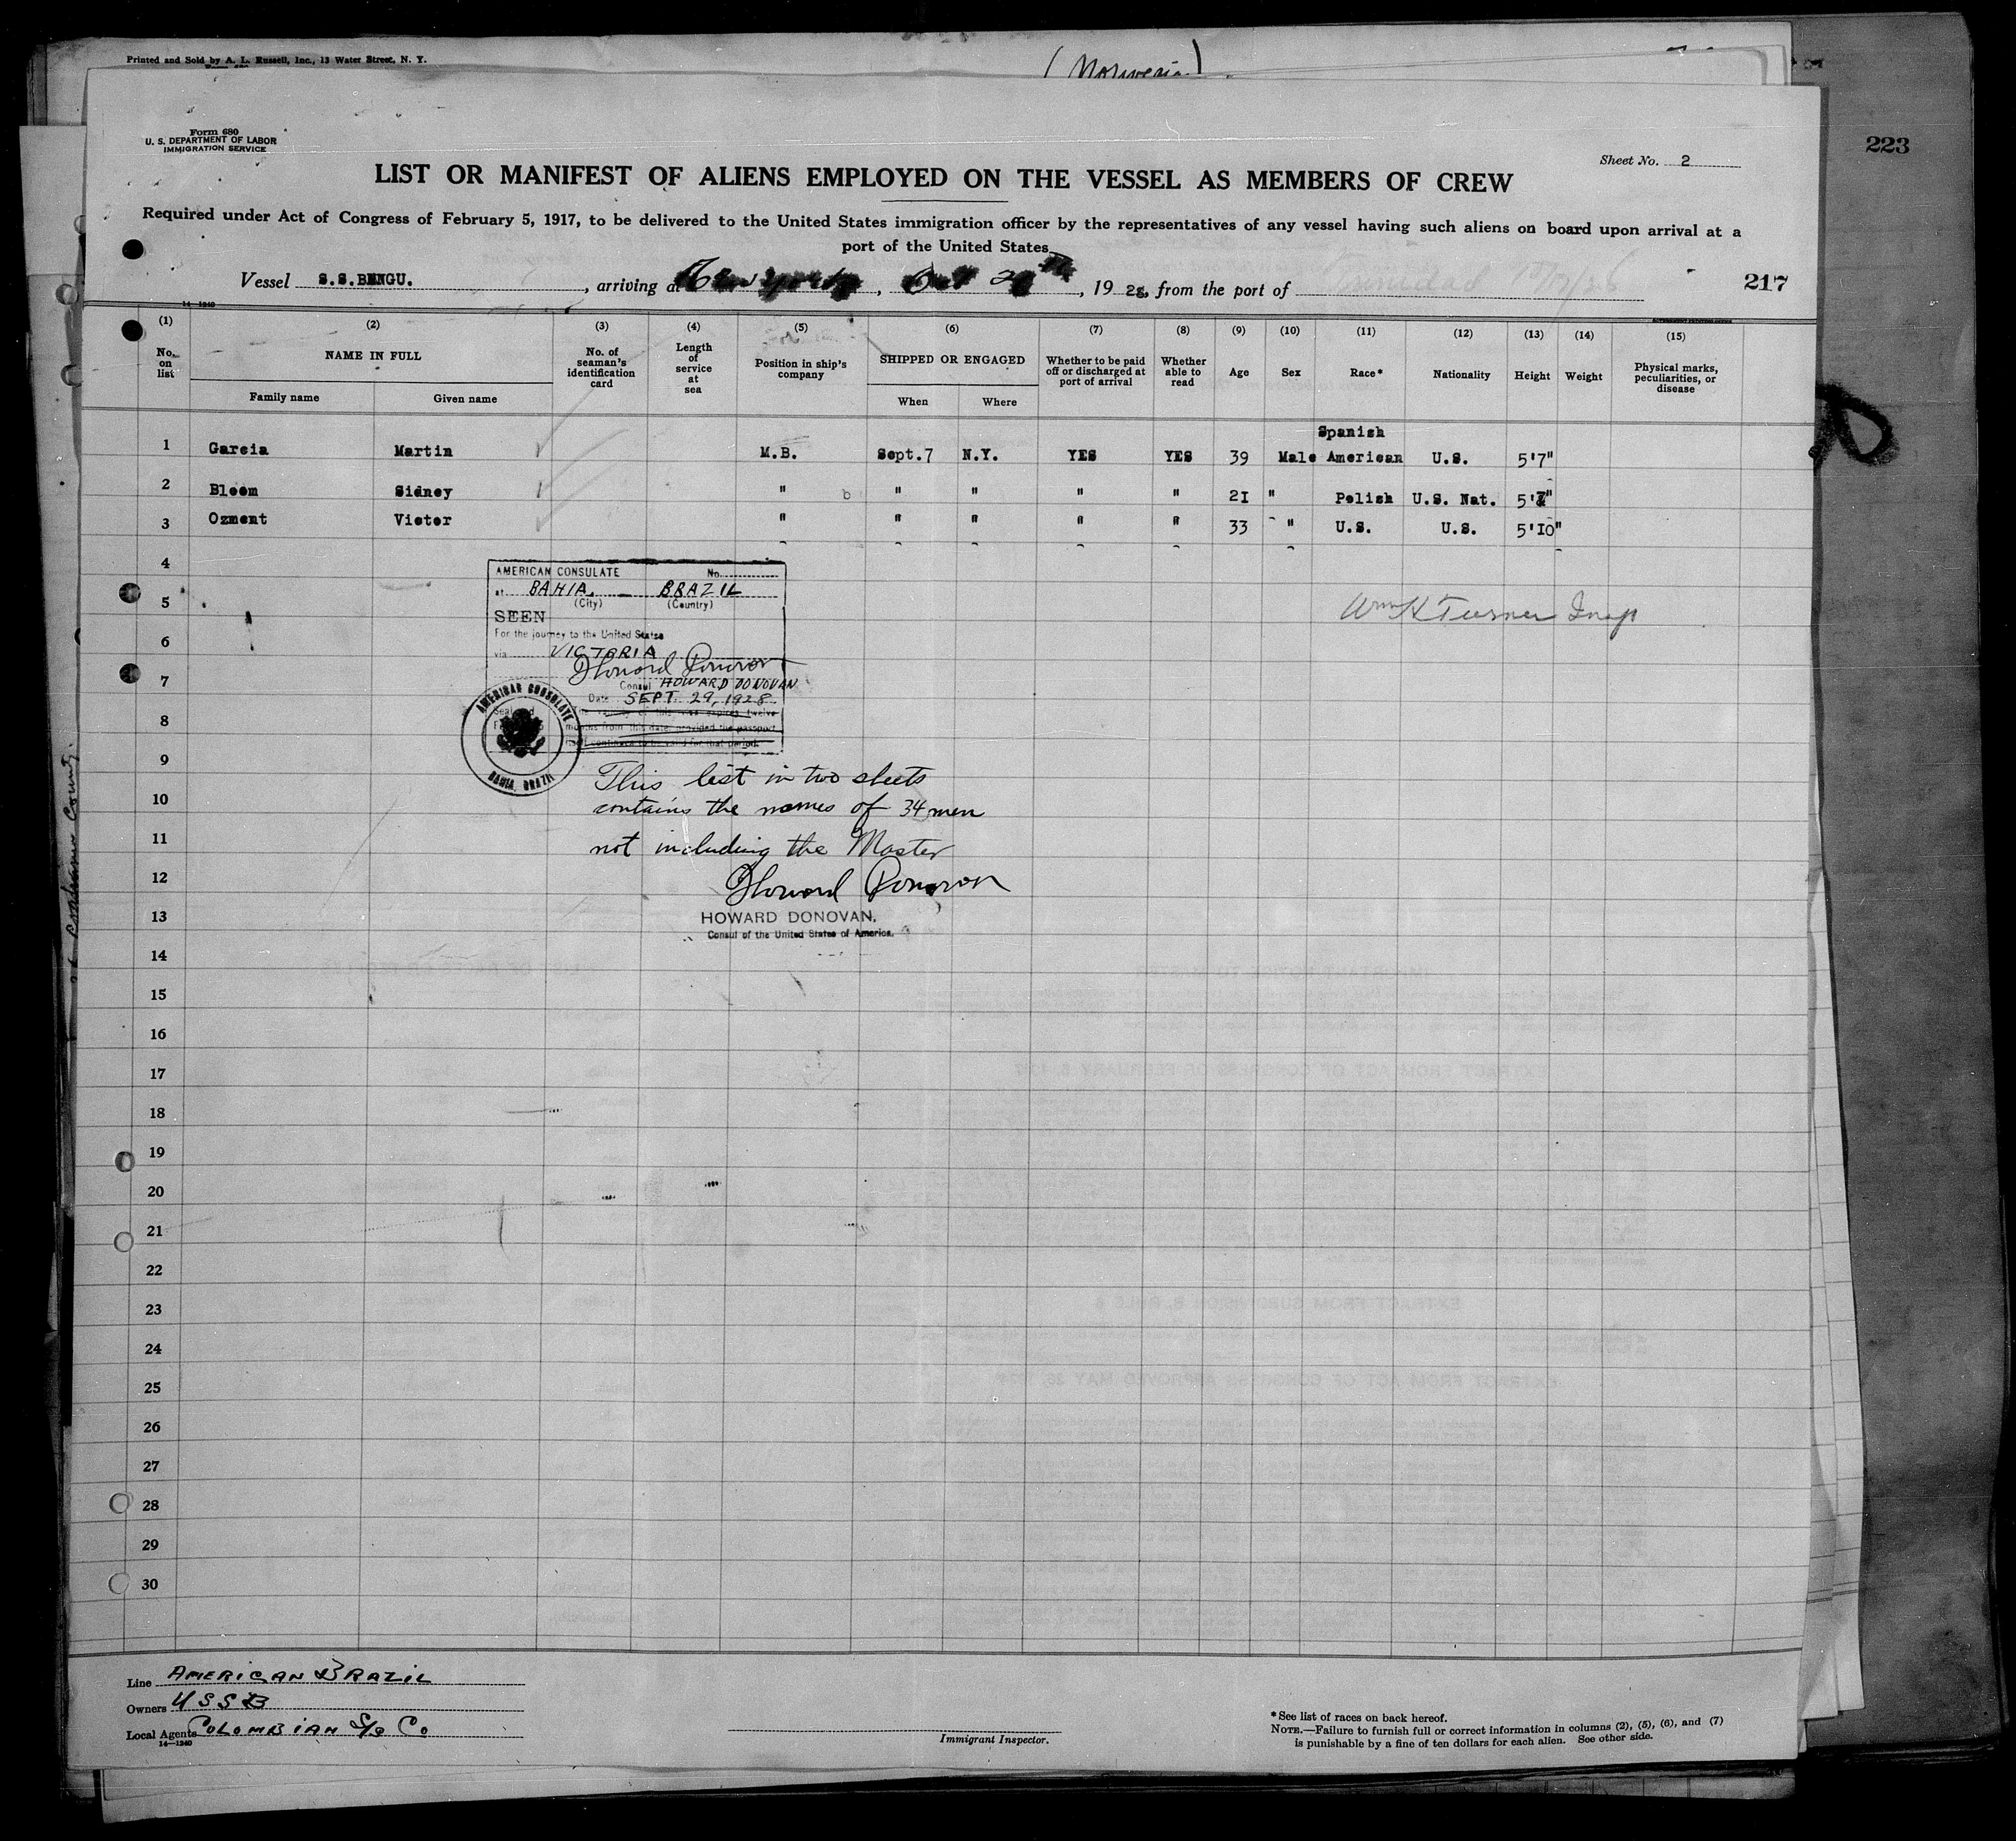 Printed and Sold by A. L. Russell, Inc., 13 Water Street, N. Y.
223
Form 680
U. S. DEPARTMENT OF LABOR
IMMIGRATION SERVICE
Sheet No. 2
LIST OR MANIFEST OF ALIENS EMPLOYED ON THE VESSEL AS MEMBERS OF CREW
Required under Act of Congress of February 5, 1917, to be delivered to the United States immigration officer by the representatives of any vessel having such aliens on board upon arrival at a
port of the United States
Vessel S.S.BENGU., arriving at New York, Oct, 1928, from the port of Trinidad
217
14-1240
(1) (2) (3) (4) (5) (6) (7) (8) (9) (10) (11) (12) (13) (14) (15)
No. on list
NAME IN FULL
Family name Given name
No. of seaman's identification card
Length of service at sea
Position in ship's company
SHIPPED OR ENGAGED
When Where
Whether to be paid off or discharged at port of arrival
Whether able to read
Age
Sex
Race*
Nationality
Height
Weight
Physical marks, peculiarities, or disease
1 Garcia Martin M.B. Sept.7 N.Y. YES YES 39 Male Spanish American U.S. 5'7"
2 Bloom Sidney " " " " " 21 " Polish U.S. Nat. 5'7"
3 Ozment Victor " " " " " 33 " U.S. U.S. 5'10"
4
AMERICAN CONSULATE No.
at BAHIA. - BRAZIL
(City) (Country)
5
SEEN
Wm K Turner Insp
For the journey to the United States
6
via VICTORIA
Howard Donovan
7
Consul HOWARD DONOVAN
Date SEPT. 29, 1928.
8
The validity of this visa expires twelve
months from this date, provided the passport
continues to be valid for that period.
AMERICAN CONSULATE
BAHIA, BRAZIL
9
This list in two sheets
10
contains the names of 34 men
11
not including the Master
12
Howard Donovan
13
HOWARD DONOVAN,
Consul of the United States of America.
14
15
16
17
18
19
20
21
22
23
24
25
26
27
28
29
30
Line AMERICAN BRAZIL
Owners USSB
Local Agents COLOMBIAN S/S Co
14-1240
Immigrant Inspector.
*See list of races on back hereof.
NOTE.—Failure to furnish full or correct information in columns (2), (5), (6), and (7)
is punishable by a fine of ten dollars for each alien. See other side.